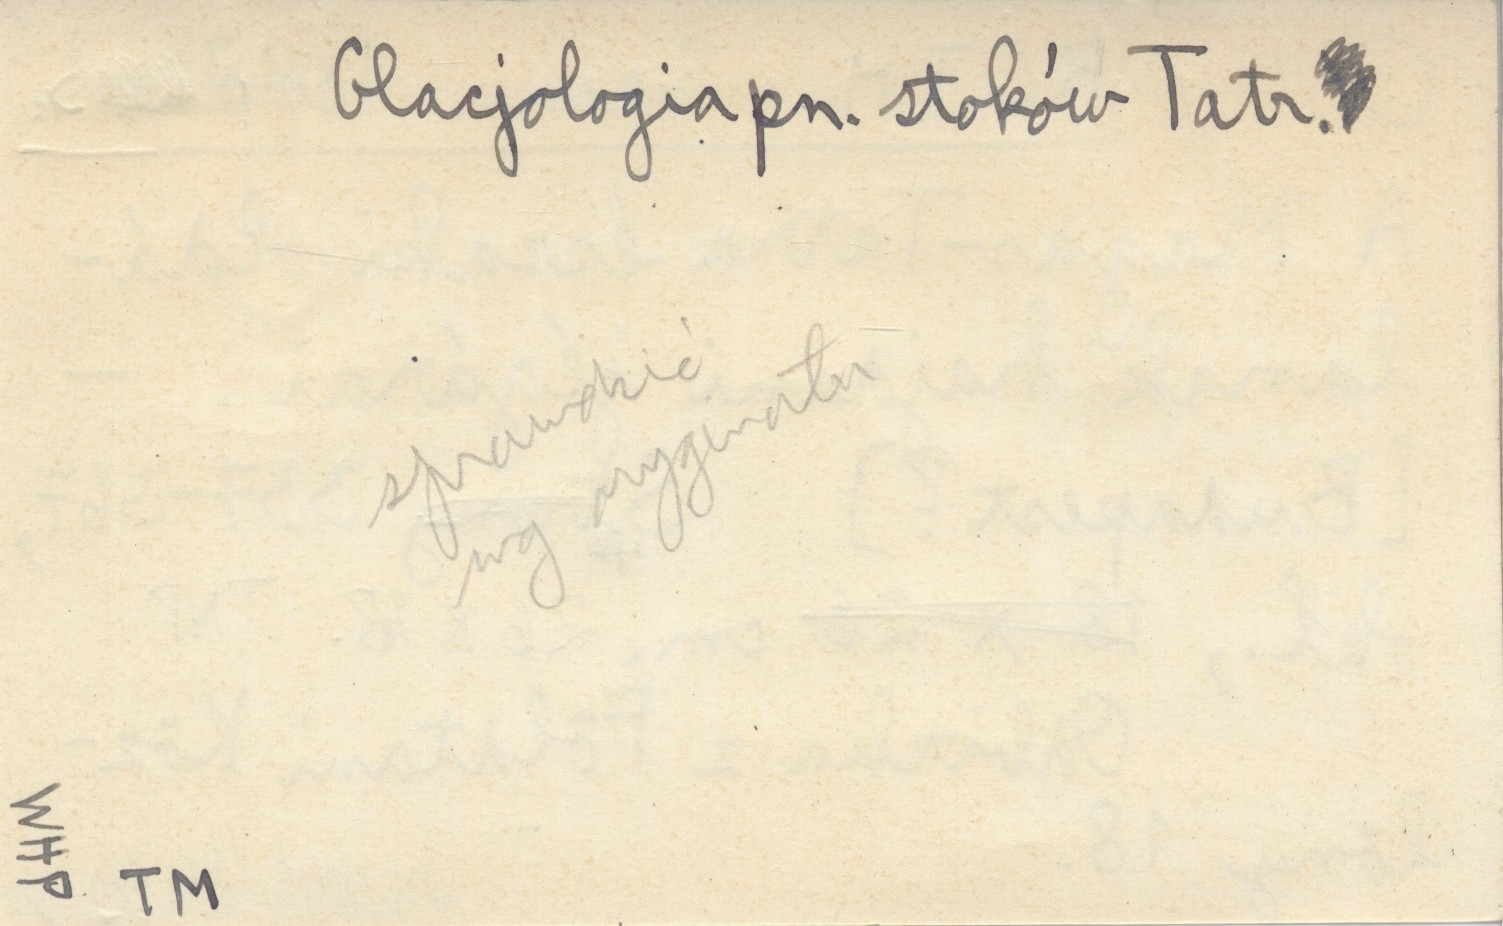 Glacjologia pn. stoków Tatr.
sprawdzić
wg oryginału
WHP
TM